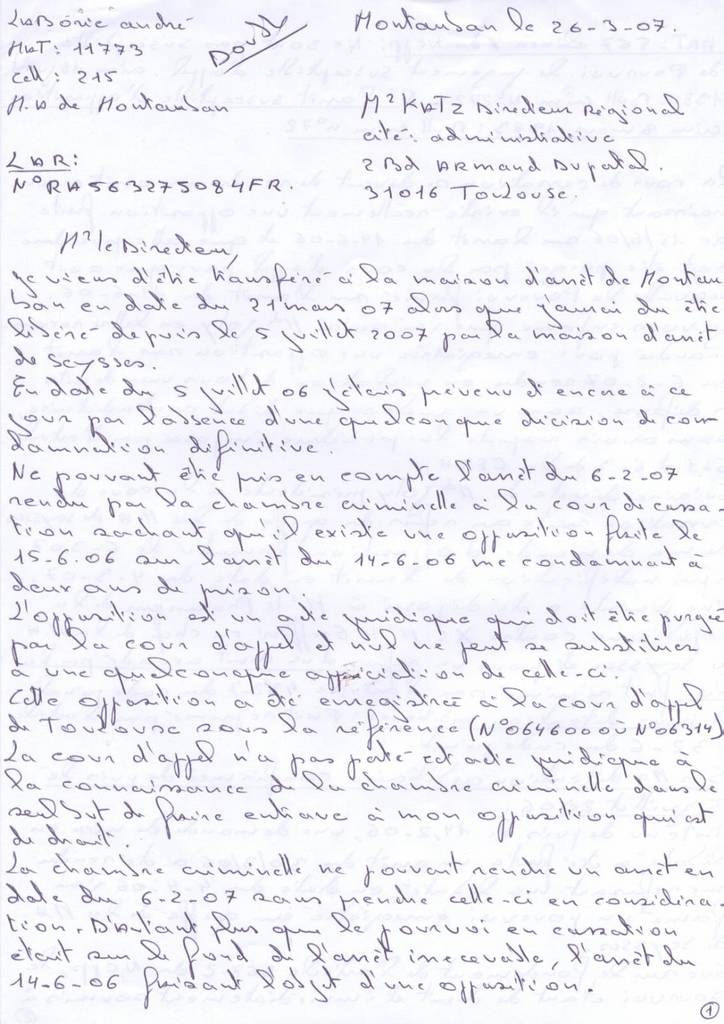 LABORIE andré
Montauban le 26-3-07.
MAT: 11773
DOUBLE
cell: 215
M.A de Montauban
Mr KATZ Directeur Régional
cité: administrative
LAR:
2 Bd ARMAND Duportal.
N° RA 563275084FR.
31016 TOULOUSE.
Mr le Directeur,
Je viens d'être transféré à la maison d'arrêt de Montau
ban en date du 21 mars 07 alors que j'aurai du être
libéré depuis le 5 juillet 2007 par la maison d'arrêt
de Seysses.
En date du 5 juillet 06 j'étais prévenu et encore à ce
jour par l'absence d'une quelconque décision de con-
damnation définitive.
Ne pouvant être pris en compte l'arrêt du 6-2-07
rendu par la chambre criminelle à la cour de cassa-
tion sachant qu'il existe une opposition faite le
15.6.06 sur l'arrêt du 14-6-06 me condamnant à
deux ans de prison.
L'opposition est un acte juridique qui doit être purgée
par la cour d'appel et nul ne peut se substituer
à une quelconque appréciation de celle-ci.
Cette opposition a été enregistrée à la cour d'appel
de Toulouse sous la référence (N°0646000 où N°06314)
La cour d'appel n'a pas porté cet acte juridique à
la connaissance de la chambre criminelle dans le
seul but de faire entrave à mon opposition qui est
de droit.
La chambre criminelle ne pouvait rendre un arrêt en
date du 6-2-07 sans prendre celle-ci en considéra-
tion. D'autant plus que le pourvoi en cassation
était sur le fond de l'arrêt irrecevable, l'arrêt du
14-6-06 faisant l'objet d'une opposition.
1